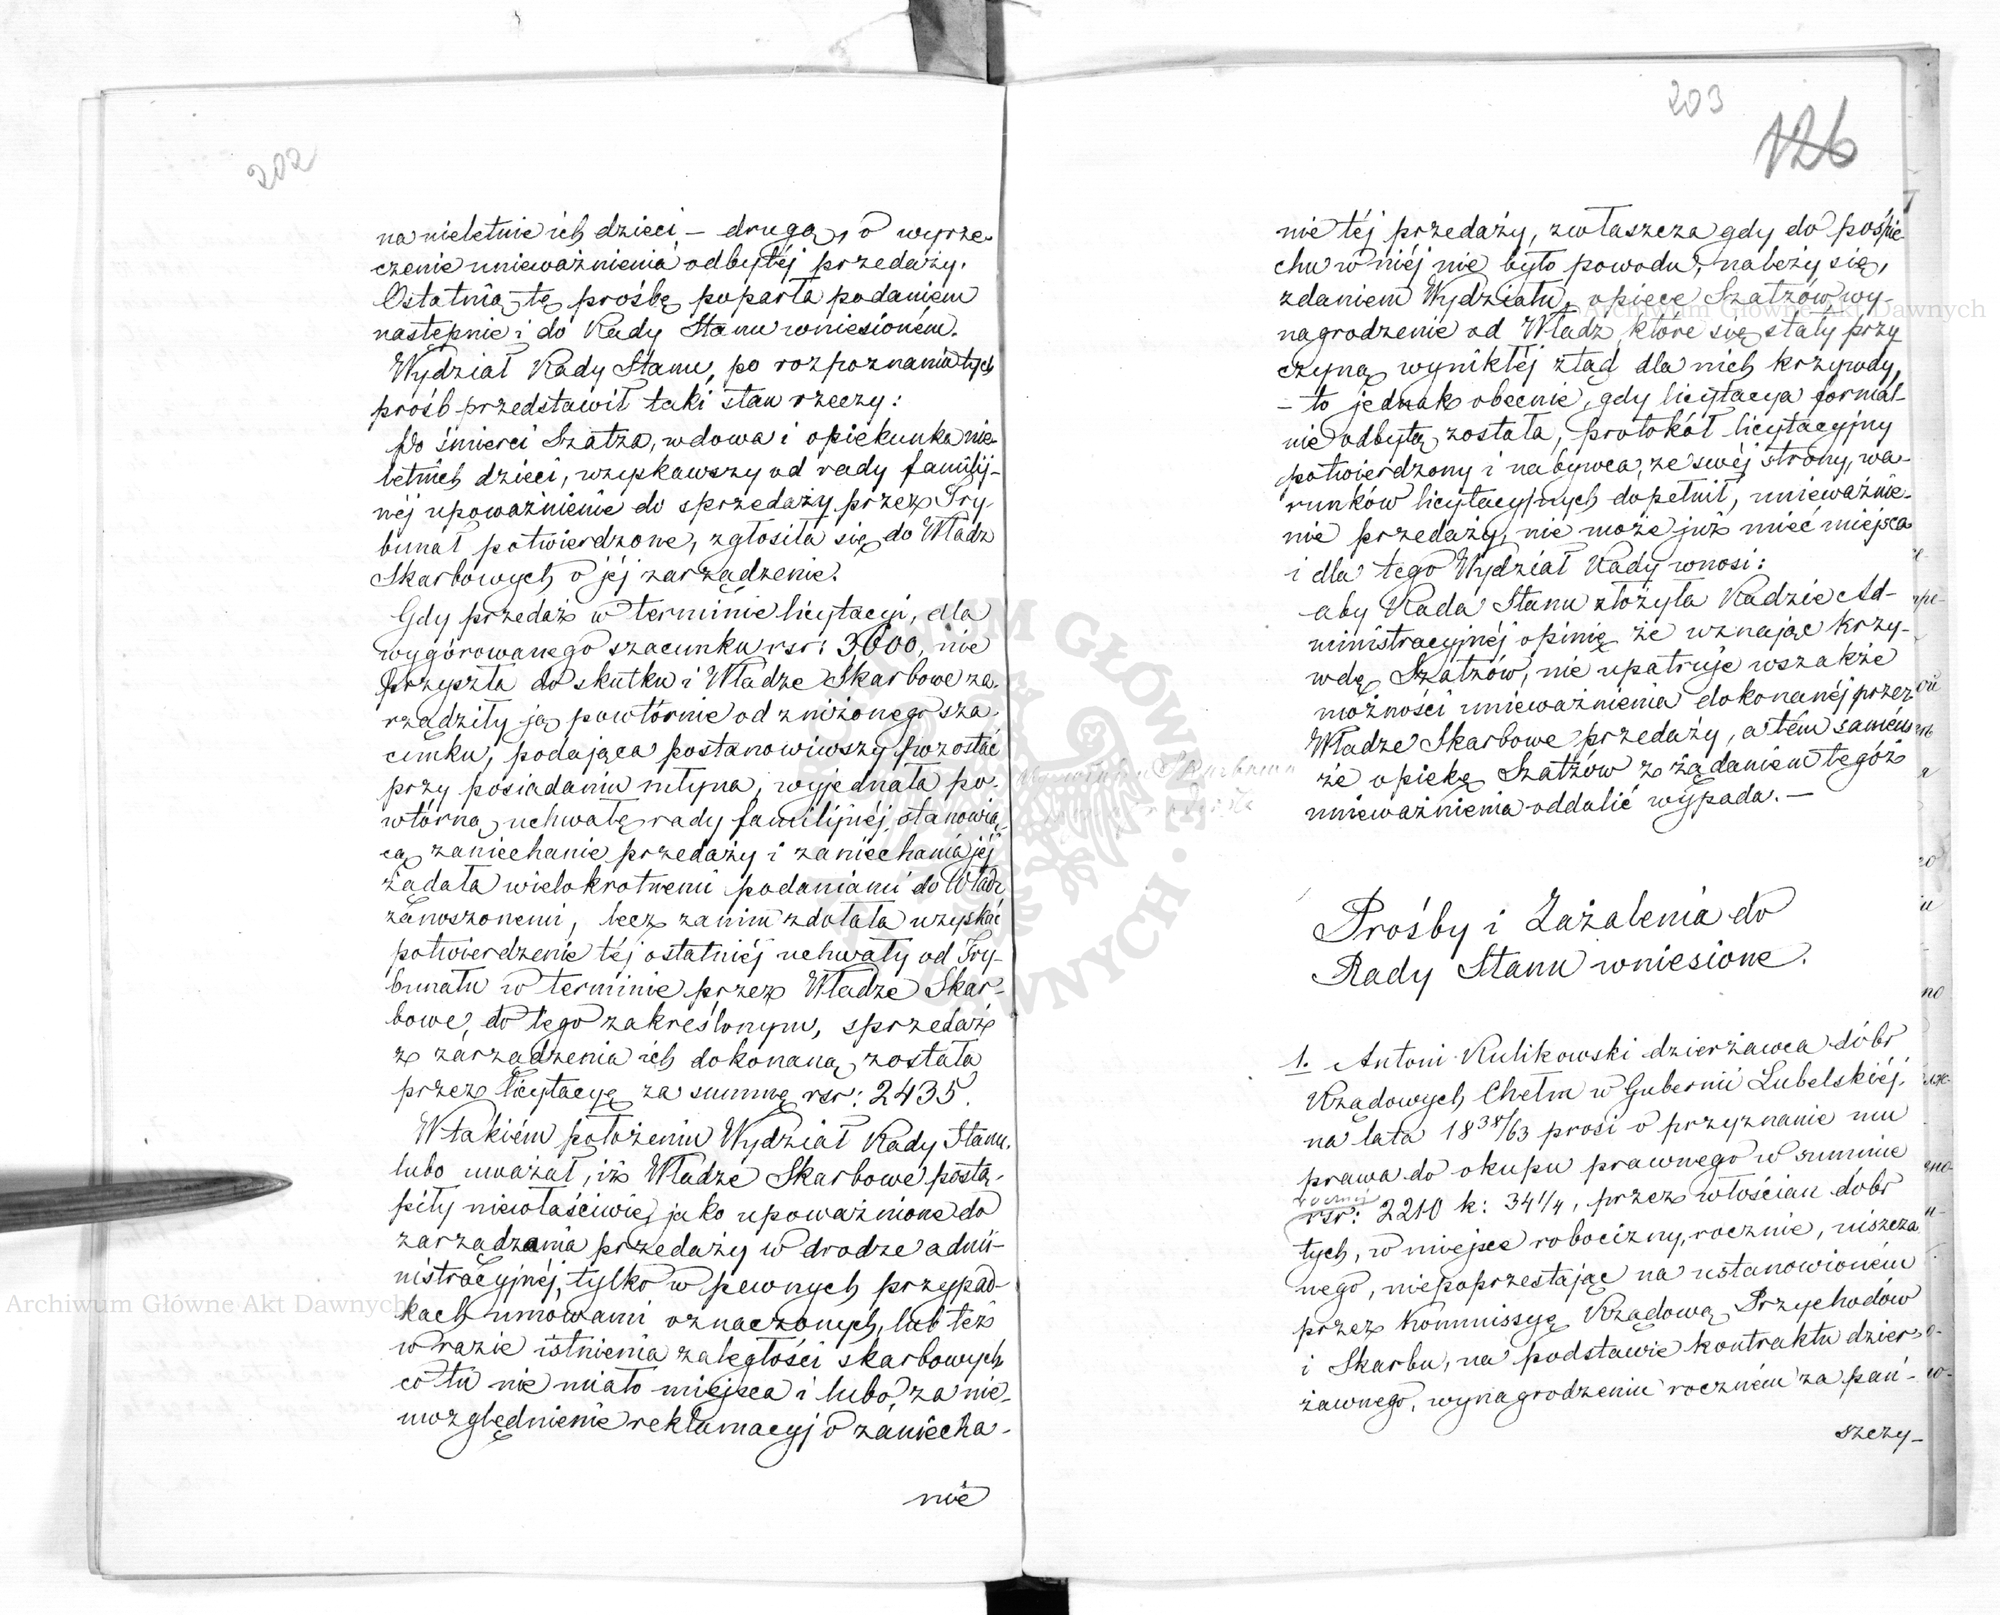 202
na nieletnie ich dzieci – drugą, o wyrze-
czenie unieważnienia odbytéj przedaży.
Ostatnią tę prośbę poparła podaniem
następnie i do Rady Stanu wniesioném.
Wydział Rady Stanu, po rozpoznaniu tych
prośb przedstawił taki stan rzeczy:
Po śmierci Szatza, wdowa i opiekunka nie-
letnich dzieci, wzyskawszy od rady familij-
néj upoważnienie do sprzedaży przez Try-
bunał potwierdzone, zgłosiła się do Władz
Skarbowych o jéj zarządzenie.
Gdy przedaż w terminie licytacyi, dla
wygórowanego szacunku rsr: 3,600, nie
przyszła do skutku i Władze Skarbowe za-
rządziły ją powtórnie od zniżonego sza-
cunku, podająca postanowiwszy pozostać
przy posiadaniu młyna, wyjednała po-
wtórną uchwałę rady familijnéj, stanowią-
cą zaniechanie przedaży i zaniechania jéj
żądała wielokrotnemi podaniami do Władz
zanoszonemi, lecz zanim zdołała uzyskać
potwierdzenie téj ostatniéj uchwały od Try-
bunału w terminie przez Władze Skar-
bowe, do tego zakreślonym, sprzedaż
z zarządzenia ich dokonaną została
przez licytacyę za summę rsr: 2435.
W takiém położeniu Wydział Rady Stanu,
lubo uważał, iż Władze Skarbowe postą-
piły niewłaściwie, jako upoważnione do
zarządzania przedaży w drodze admi-
nistracyjnéj, tylko w pewnych przypad-
kach umowami oznaczonych, lub też
w razie istnienia zaległości skarbowych
co tu nie miało miejsca i lubo, za nie-
uwzględnienie reklamacyj o zaniecha-
nie
203
126
nie téj przedaży, zwłaszcza gdy do pośpie-
chu w niéj nie było powodu, należy się,
zdaniem Wydziału, opiece Szatzów wy-
nagrodzenie od Władz, które się stały przy
czyną wynikłéj ztąd dla nich krzywdy,
– to jednak obecnie, gdy licytacya formal-
nie odbytą została, protokół licytacyjny
potwierdzony i nabywca, ze swéj strony, wa-
runków licytacyjnych dopełnił, unieważnie-
nie przedaży, nie może już mieć miejsca
i dla tego Wydział Rady wnosi:
aby Rada Stanu złożyła Radzie Ad-
ministracyjnéj opinię że uznając krzy-
wdę Szatzów, nie upatruje wszakże
możności unieważnienia dokonanéj przez
Władze Skarbowe przedaży, a tém samém
że opiekę Szatzów z żądaniem tegoż
unieważnienia oddalić wypada. –
Prośby i Zażalenia do
Rady Stanu wniesione.
1. Antoni Kulikowski dzierżawca dóbr
Rządowych Chełm w Gubernii Lubelskiéj,
na lata 18 38/63 prosi o przyznanie mu
prawa do okupu prawnego w summie
rocznéj
rsr: 2210 k: 34 1/4, przez włościan dóbr
tych, w miejsce robocizny, rocznie, uiszcza
nego, niepoprzestając na ustanowioném
przez Kommissyę Rządową Przychodów
i Skarbu, na podstawie kontraktu dzier-
żawnego, wynagrodzeniu roczném za pań-
szczy-
Archiwum Główne Akt Dawnych
Archiwum Główne Akt Dawnych